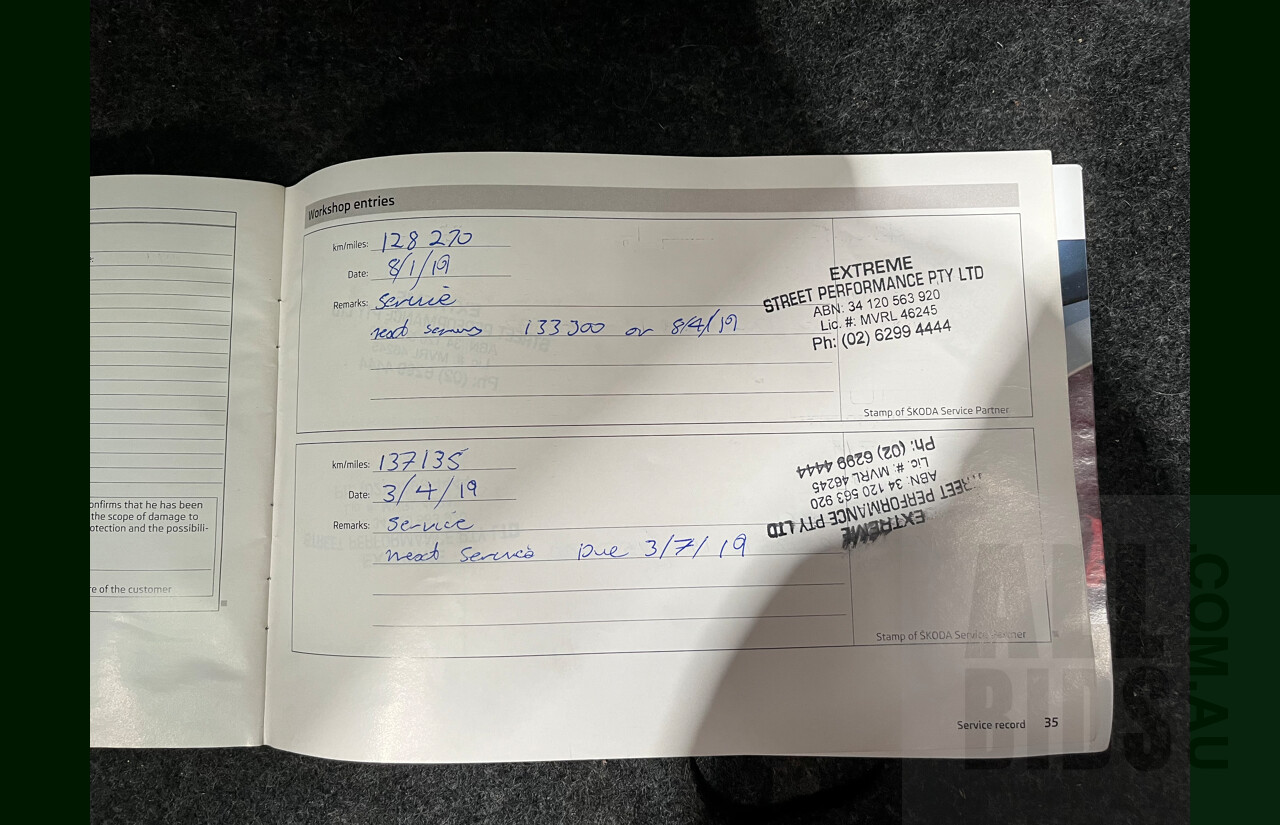 e:
onfirms that he has been
the scope of damage to
otection and the possibili-
re of the customer
Workshop entries
km/miles: 128 270
Date: 8/1/19
Remarks: Service
next service 133300 or 8/4/19
EXTREME
STREET PERFORMANCE PTY LTD
ABN: 34 120 563 920
Lic. #: MVRL 46245
Ph: (02) 6299 4444
Stamp of ŠKODA Service Partner
km/miles: 137135
Date: 3/4/19
Remarks: Service
next Service Due 3/7/19
EXTREME
REET PERFORMANCE PTY LTD
ABN: 34 120 563 920
Lic. #: MVRL 46245
Ph: (02) 6299 4444
Stamp of ŠKODA Service Partner
Service record 35
ALL
BIDS
.COM.AU